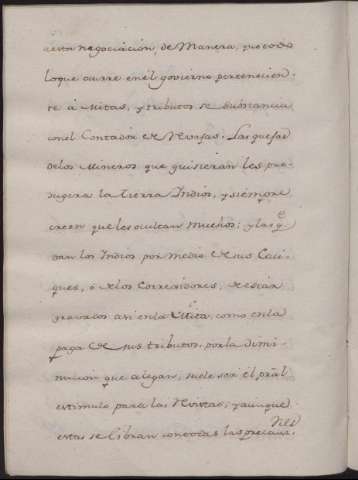 aesta negociacion, de Manera, que todo
loque ocurre enel govierno pertenecien-
te à Mitas, y tributos se substancia
conel Contador de Revisas. Las quejas
delos Mineros que quisieran les pro-
dugera la tierra Indios, y siempre
creen que les ocultan muchos; y las qe
dan los Indios por medio de sus Caci-
ques, ó delos Corregidores, de estar
gravados asi enla Mita, como enla
paga de sus tributos, porla dimi-
nucion que alegan, suele ser él pral
estimulo para las Revistas; y aunque
estas se libran contodas las precau-